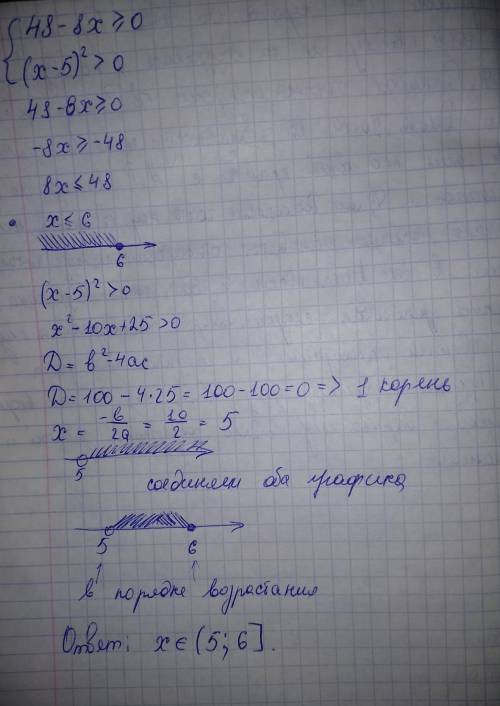 { 48-8x⩾0
(x-5)²>0
48-8x⩾0
-8x⩾-48
8x⩽48
• x⩽6
6
(x-5)²>0
x²-10x+25>0
D=b²-4ac
D=100-4·25=100-100=0=> 1 корень
x = -b/2a = 10/2 = 5
5
соединяем оба графика
5 6
в порядке возрастания
Ответ: x∈(5;6].